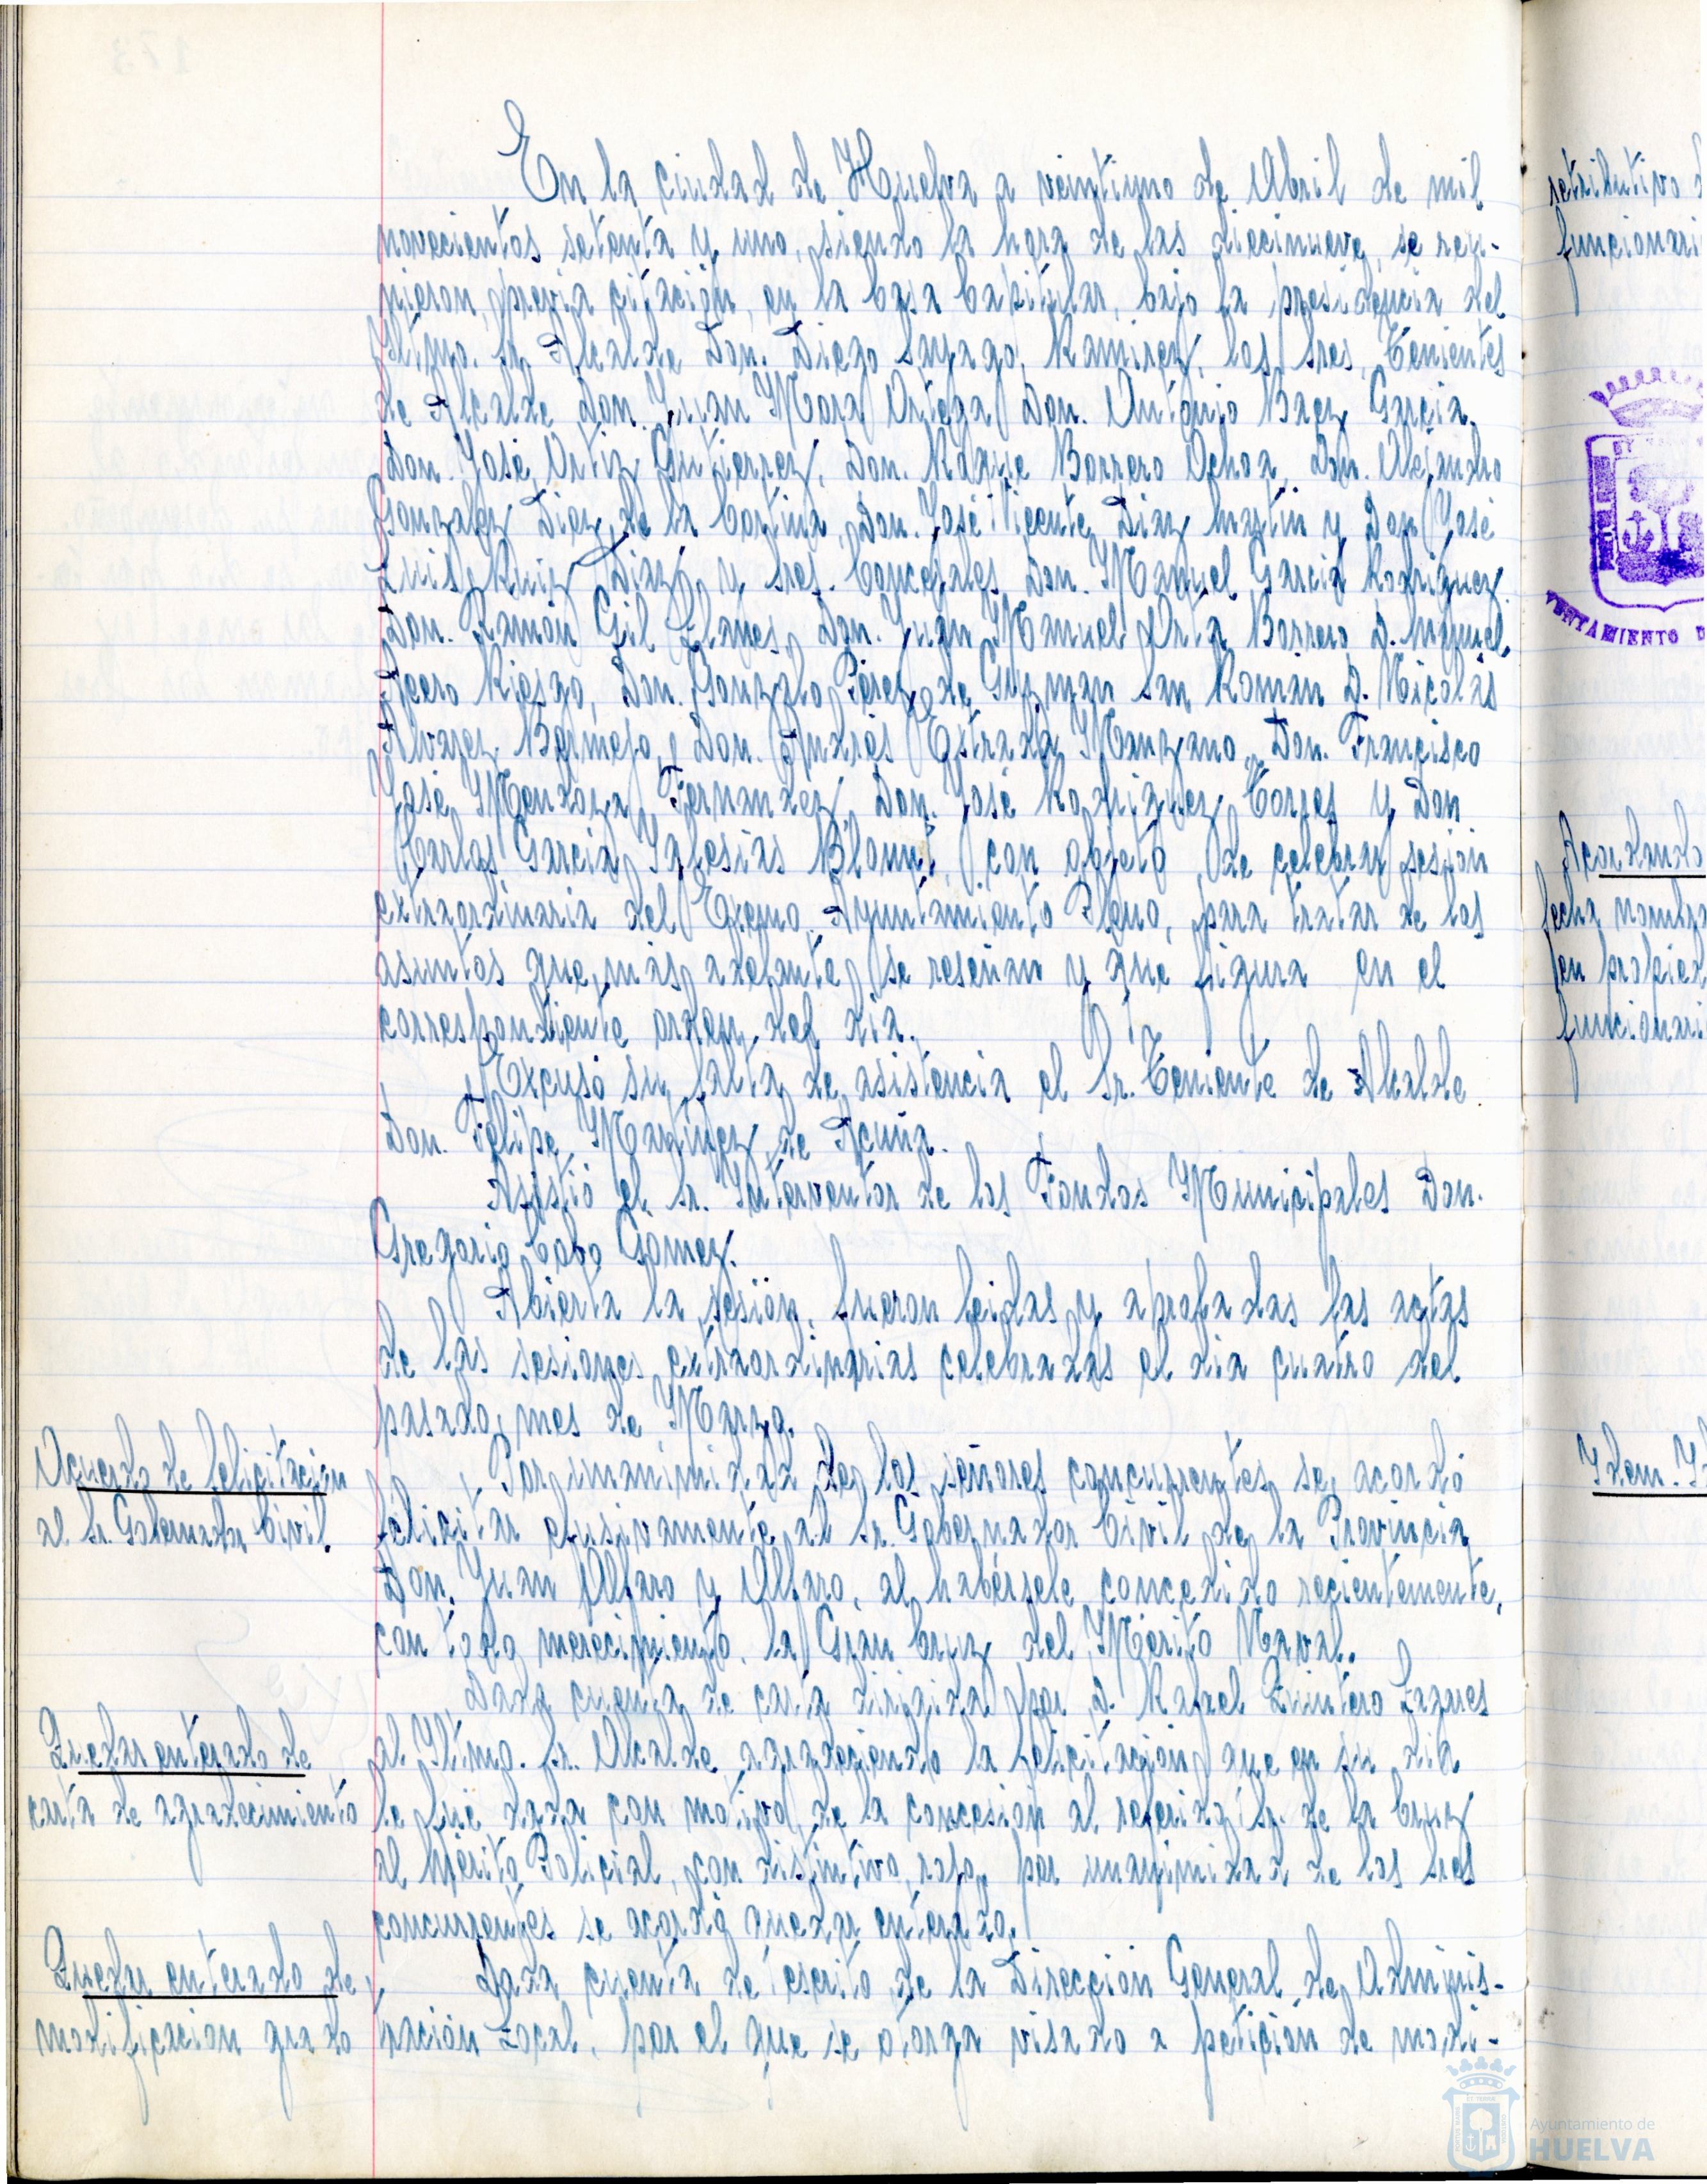 En la ciudad de Huelva a veintiuno de Abril de mil
novecientos setenta y uno, siendo la hora de las diecinueve, se reu-
nieron, previa citación, en la Casa Capitular, bajo la presidencia del
Iltmo. Sr. Alcalde Don. Diego Sayago Ramirez, los Sres. Tenientes
de Alcalde Don. Juan Mora Ortega Don. Antonio Baez Garcia,
Don. José Ortiz Gutierrez, Don. Roque Borrero Ochoa, Don. Alejandro
Gonzalez Diaz de la Cortina, Don. José Vicente Diaz Martin y Don José
Luis Ruiz Diaz, y Sres. Concejales Don. Manuel Garcia Rodriguez
Don. Ramón Gil Llanes, Don. Juan Manuel Orta Borrero, D. Manuel
Acero Riesgo, Don. Gonzalo Pérez de Guzman San Roman D. Nicolás
Alvarez Bermejo, Don. Andrés Estrada Manzano, Don. Francisco
José Mendoza Fernandez, Don. José Rodriguez Torres y Don
Carlos Garcia Iglesias Blount, con objeto de celebrar sesión
extraordinaria del Excmo. Ayuntamiento Pleno, para tratar de los
asuntos que más adelante se reseñan y que figura en el
correspondiente orden del dia.
Excusó su falta de asistencia el Sr. Teniente de Alcalde
Don. Felipe Martinez de Acuña.
Asistió el Sr. Interventor de los Fondos Municipales Don.
Gregorio Cobo Gomez.
Abierta la sesión, fueron leidas y aprobadas las actas
de las sesiones extraordinarias celebradas el dia cuatro del
pasado mes de Marzo.
Acuerdo de felicitacion
al Sr. Gobernador Civil.
Por unanimidad de los señores concurrentes se acordó
felicitar efusivamente al Sr. Gobernador Civil de la Provincia
Don. Juan Alfaro y Alfaro, al habérsele concedido recientemente,
con todo merecimiento, la Gran Cruz del Mérito Naval.
Quedar enterado de
carta de agradecimiento
Dada cuenta de carta dirigida por D. Rafael Quintero Lagares
al Iltmo. Sr. Alcalde agradeciendo la felicitación que en su dia
le fué dada con motivo de la concesion al referido Sr. de la Cruz
al Mérito Policial, con distintivo rojo, por unanimidad de los Sres
concurrentes se acordó quedar enterado.
Quedar enterado de
modificacion grado
Dada cuenta de escrito de la Dirección General de Adminis-
tración Local, por el que se otorga visado a petición de modi-
retributivo
funcionari
AYUNTAMIENTO D
Acordando
fecha nombra
en propied
funcionari
Idem. Id
Ayuntamiento de
HUELVA